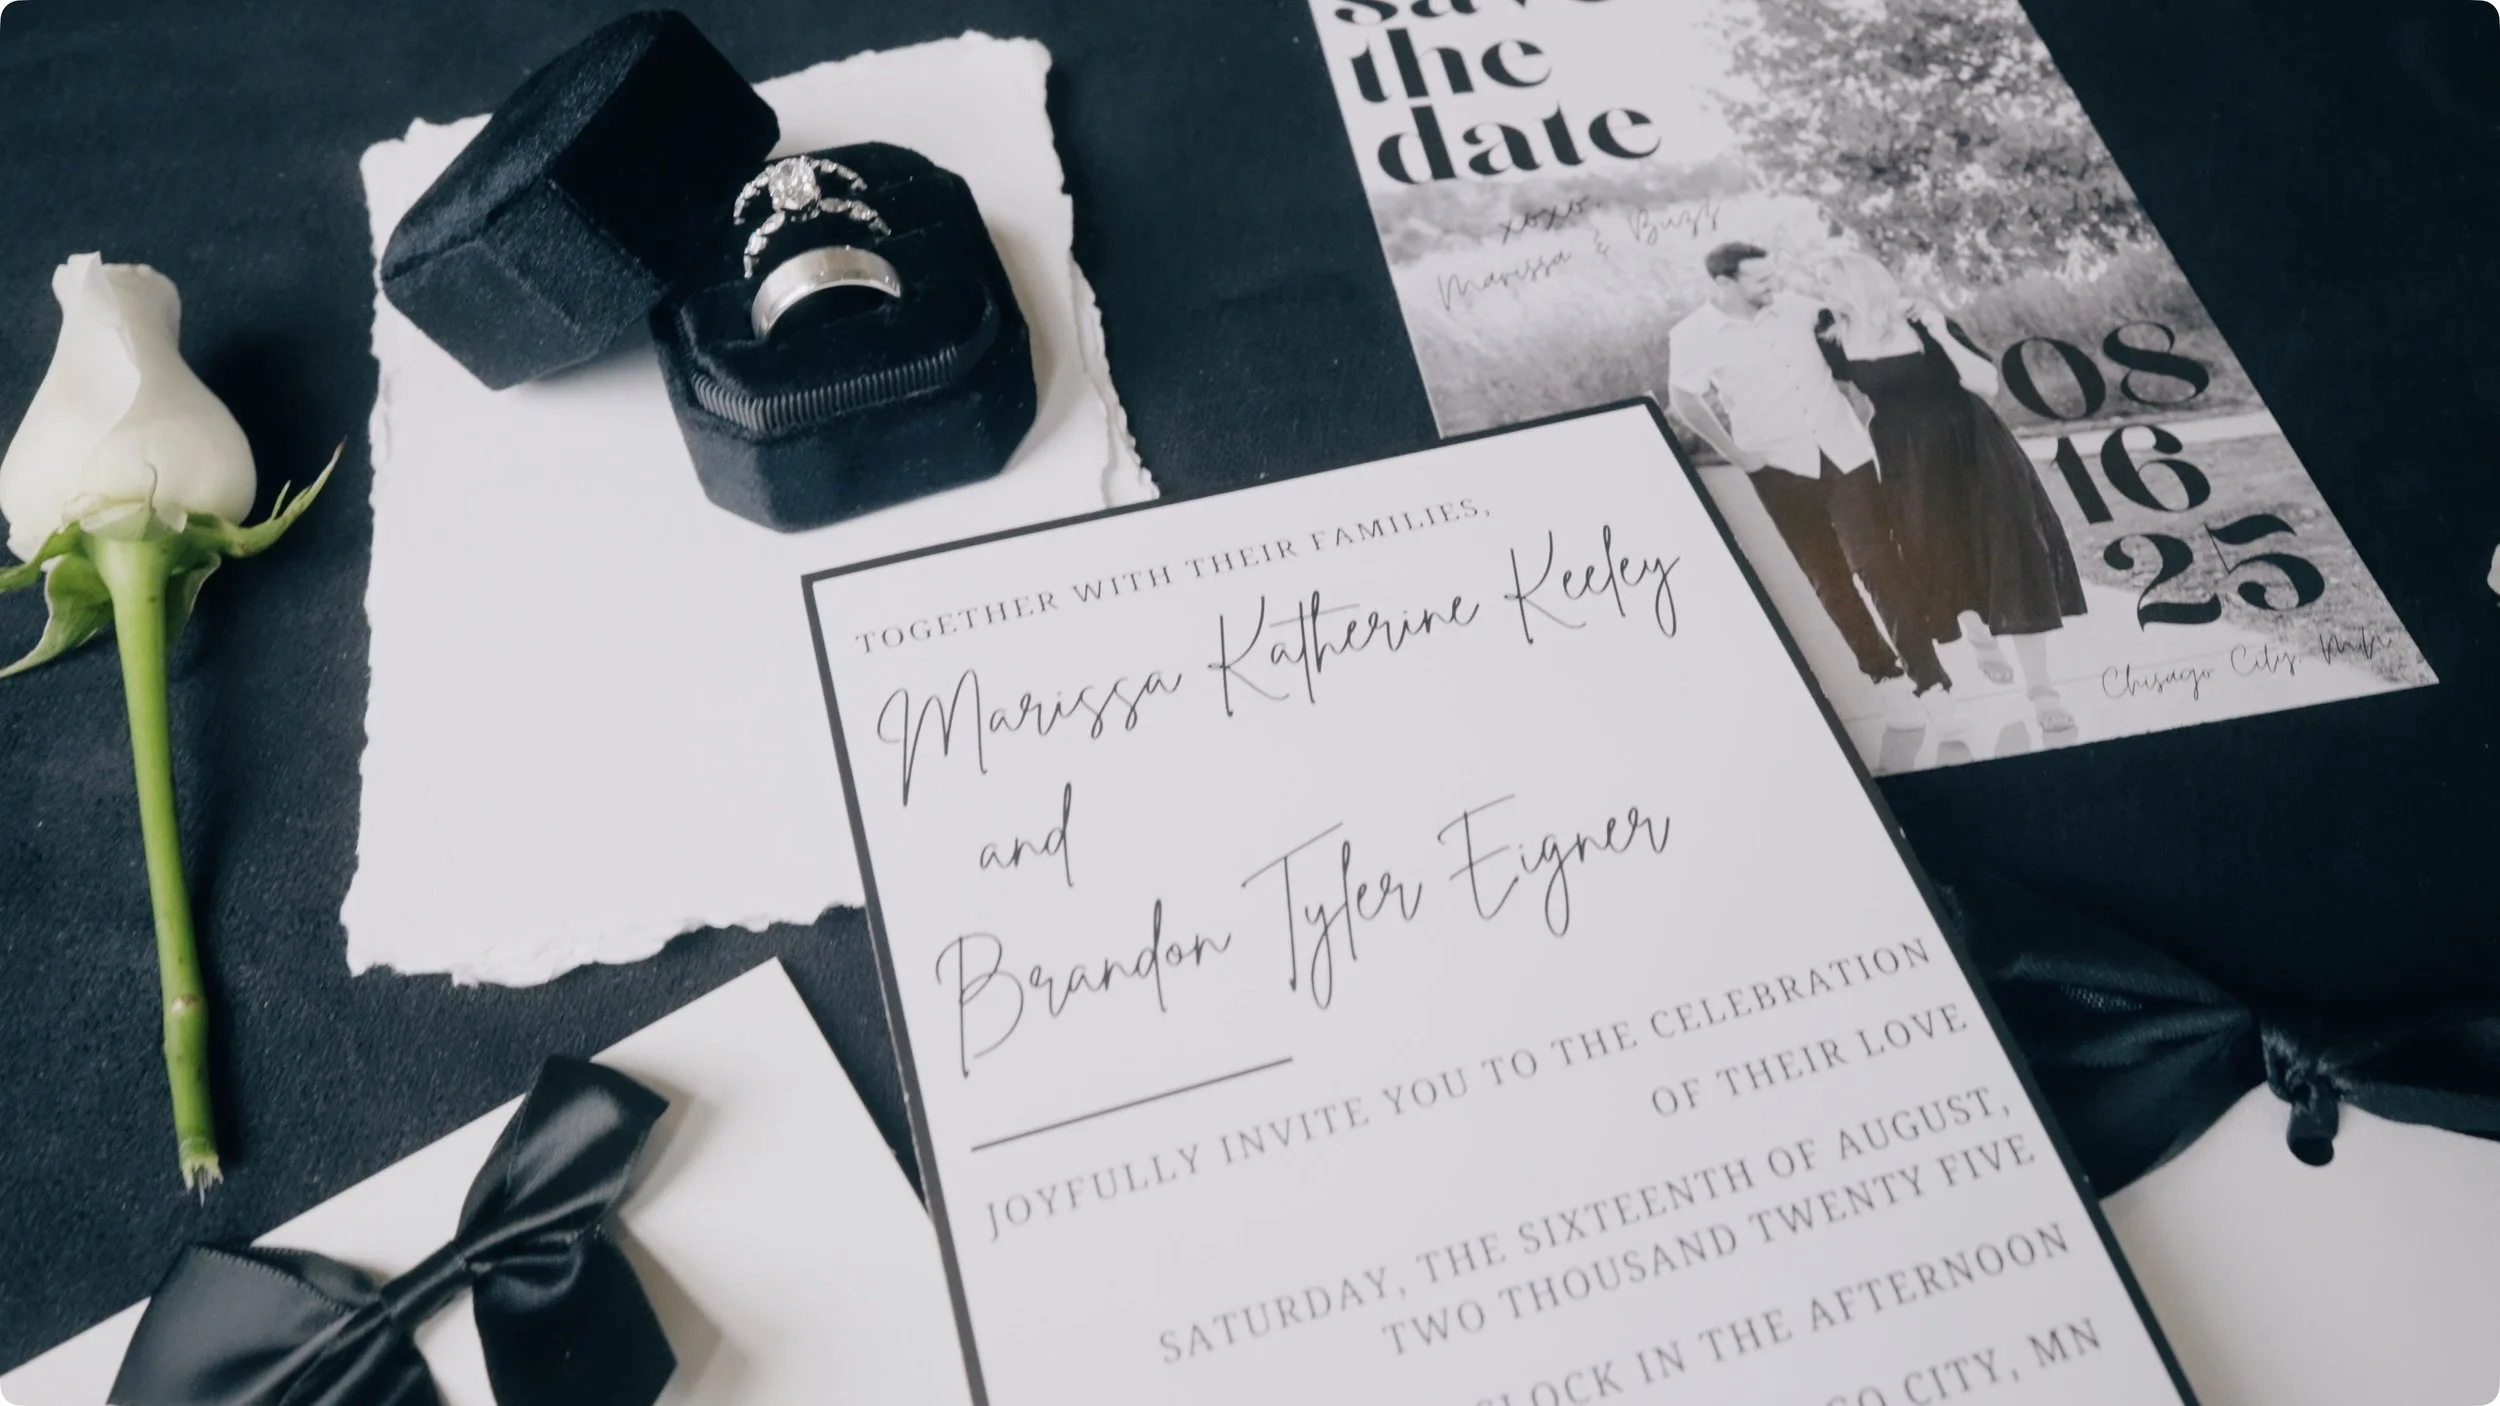 save
the
date
xoxo,
Marissa & Buzz
'08
16
25
Chisago City, MN
TOGETHER WITH THEIR FAMILIES,
Marissa Katherine Keeley
and
Brandon Tyler Eigner
JOYFULLY INVITE YOU TO THE CELEBRATION
OF THEIR LOVE
SATURDAY, THE SIXTEENTH OF AUGUST,
TWO THOUSAND TWENTY FIVE
CLOCK IN THE AFTERNOON
GO CITY, MN